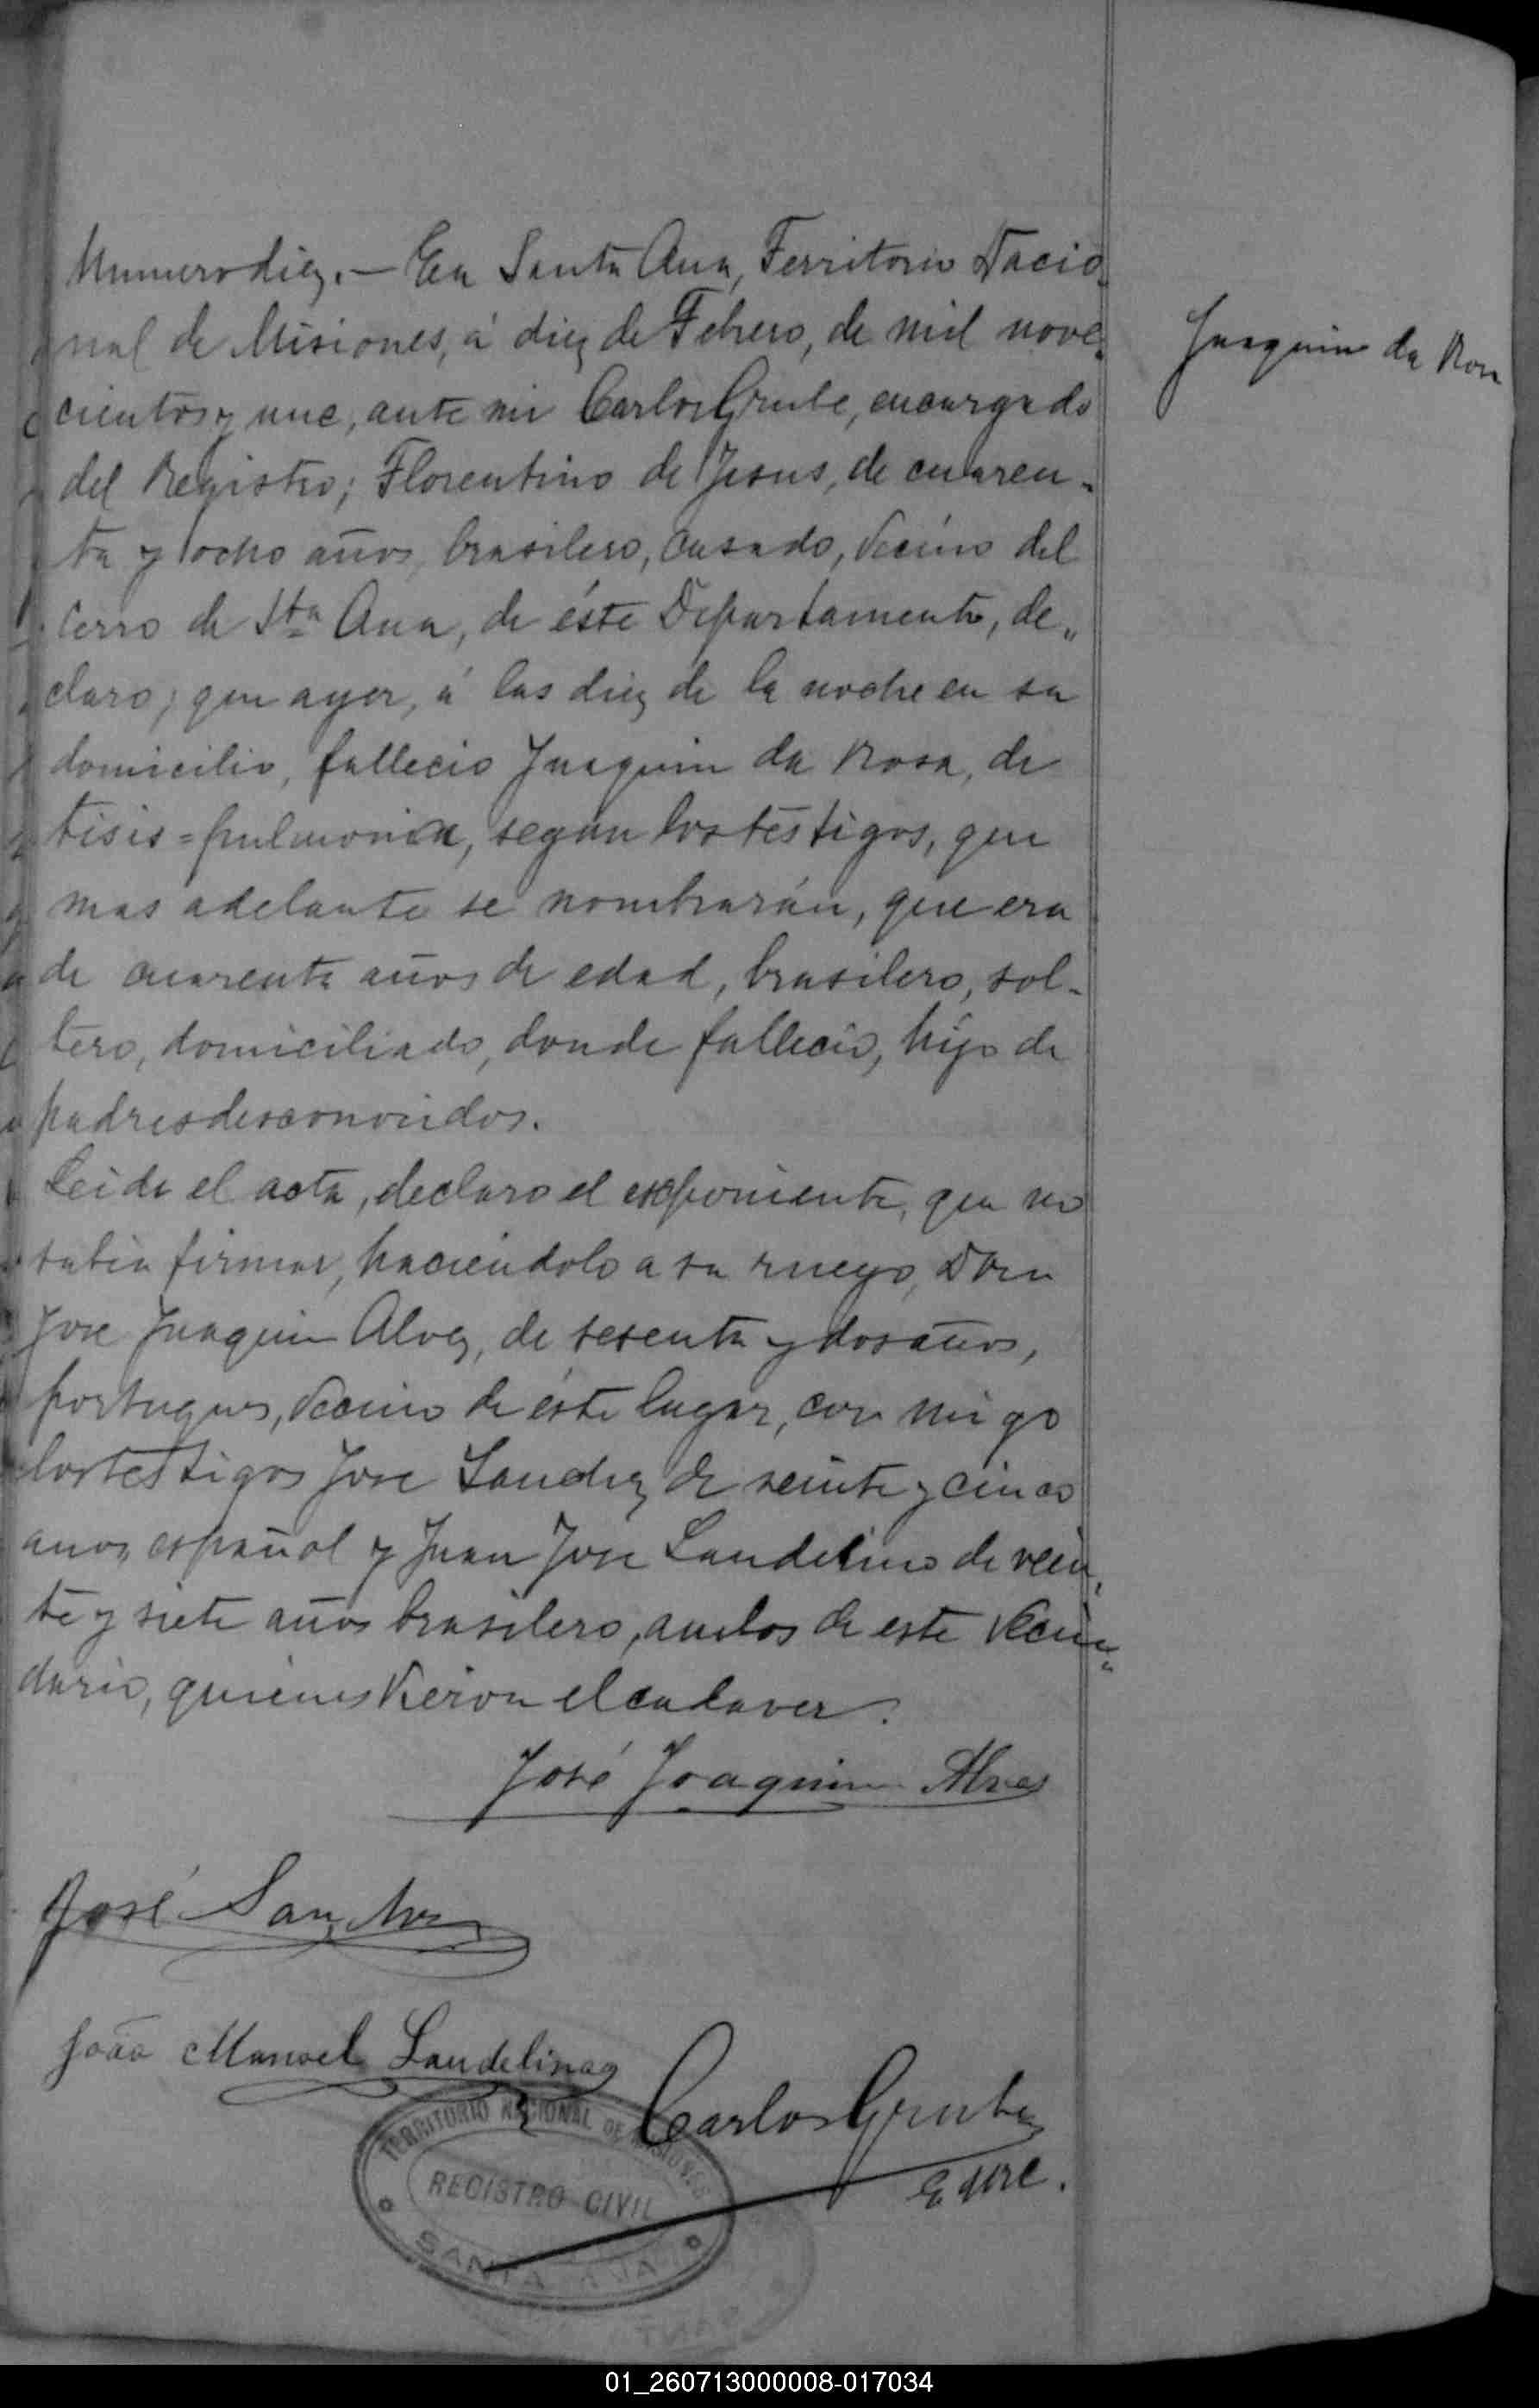 Numero diez.— En Santa Ana, Territorio Nacio-
nal de Misiones, á diez de Febrero, de mil nove-
cientos y uno, ante mi Carlos Grube, encargado
del Registro; Florentino de Jesus, de cuaren-
ta y ocho años, brasilero, casado, vecino del
Cerro de Sta Ana, de éste Departamento, de„
claro; que ayer, á las diez de la noche en su
domicilio, fallecio Juaquin da Rosa, de
tisis=pulmonia, segun los testigos, que
mas adelante se nombrarán, que era
de cuarenta años de edad, brasilero, sol-
tero, domiciliado, donde fallecio, hijo de
padres desconocidos.
Leida el acta, declaro el exponiente, que no
sabia firmar, haciendolo a su ruego, Don
Jose Juaquin Alvez, de sesenta y dos años,
portugues, vecino de éste lugar, con migo
los testigos Jose Sanchez de veinte y cinco
anos, español y Juan Jose Landelino de vein-
te y siete años brasilero, ambos de este Vecin„
dario, quienes Vieron el cadaver.
José Joaquim Alves
José Sanchez
João Manoel Landelino
Carlos Grube
TERRITORIO NACIONAL DE MISIONES
REGISTRO CIVIL
SANTA ANA
Juaquin da Rosa
01_260713000008-017034